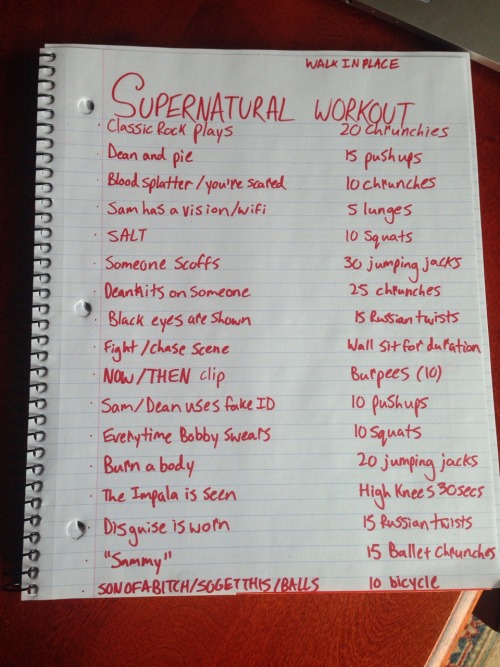 WALK IN PLACE
SUPERNATURAL WORKOUT
Classic Rock plays 20 Chrunchies
Dean and pie 15 pushups
Blood splatter/you're scared 10 chrunches
Sam has a vision/wifi 5 lunges
SALT 10 Squats
Someone Scoffs 30 jumping jacks
Dean hits on someone 25 chrunches
Black eyes are shown 15 Russian twists
Fight/chase scene Wall sit for duration
NOW/THEN clip Burpees (10)
Sam/Dean uses fake ID 10 pushups
Everytime Bobby Swears 10 squats
Burn a body 20 jumping jacks
The Impala is seen High Knees 30secs
Disguise is worn 15 Russian twists
"Sammy" 15 Ballet Chrunches
SON OF A BITCH/SO GET THIS/BALLS 10 bicycle